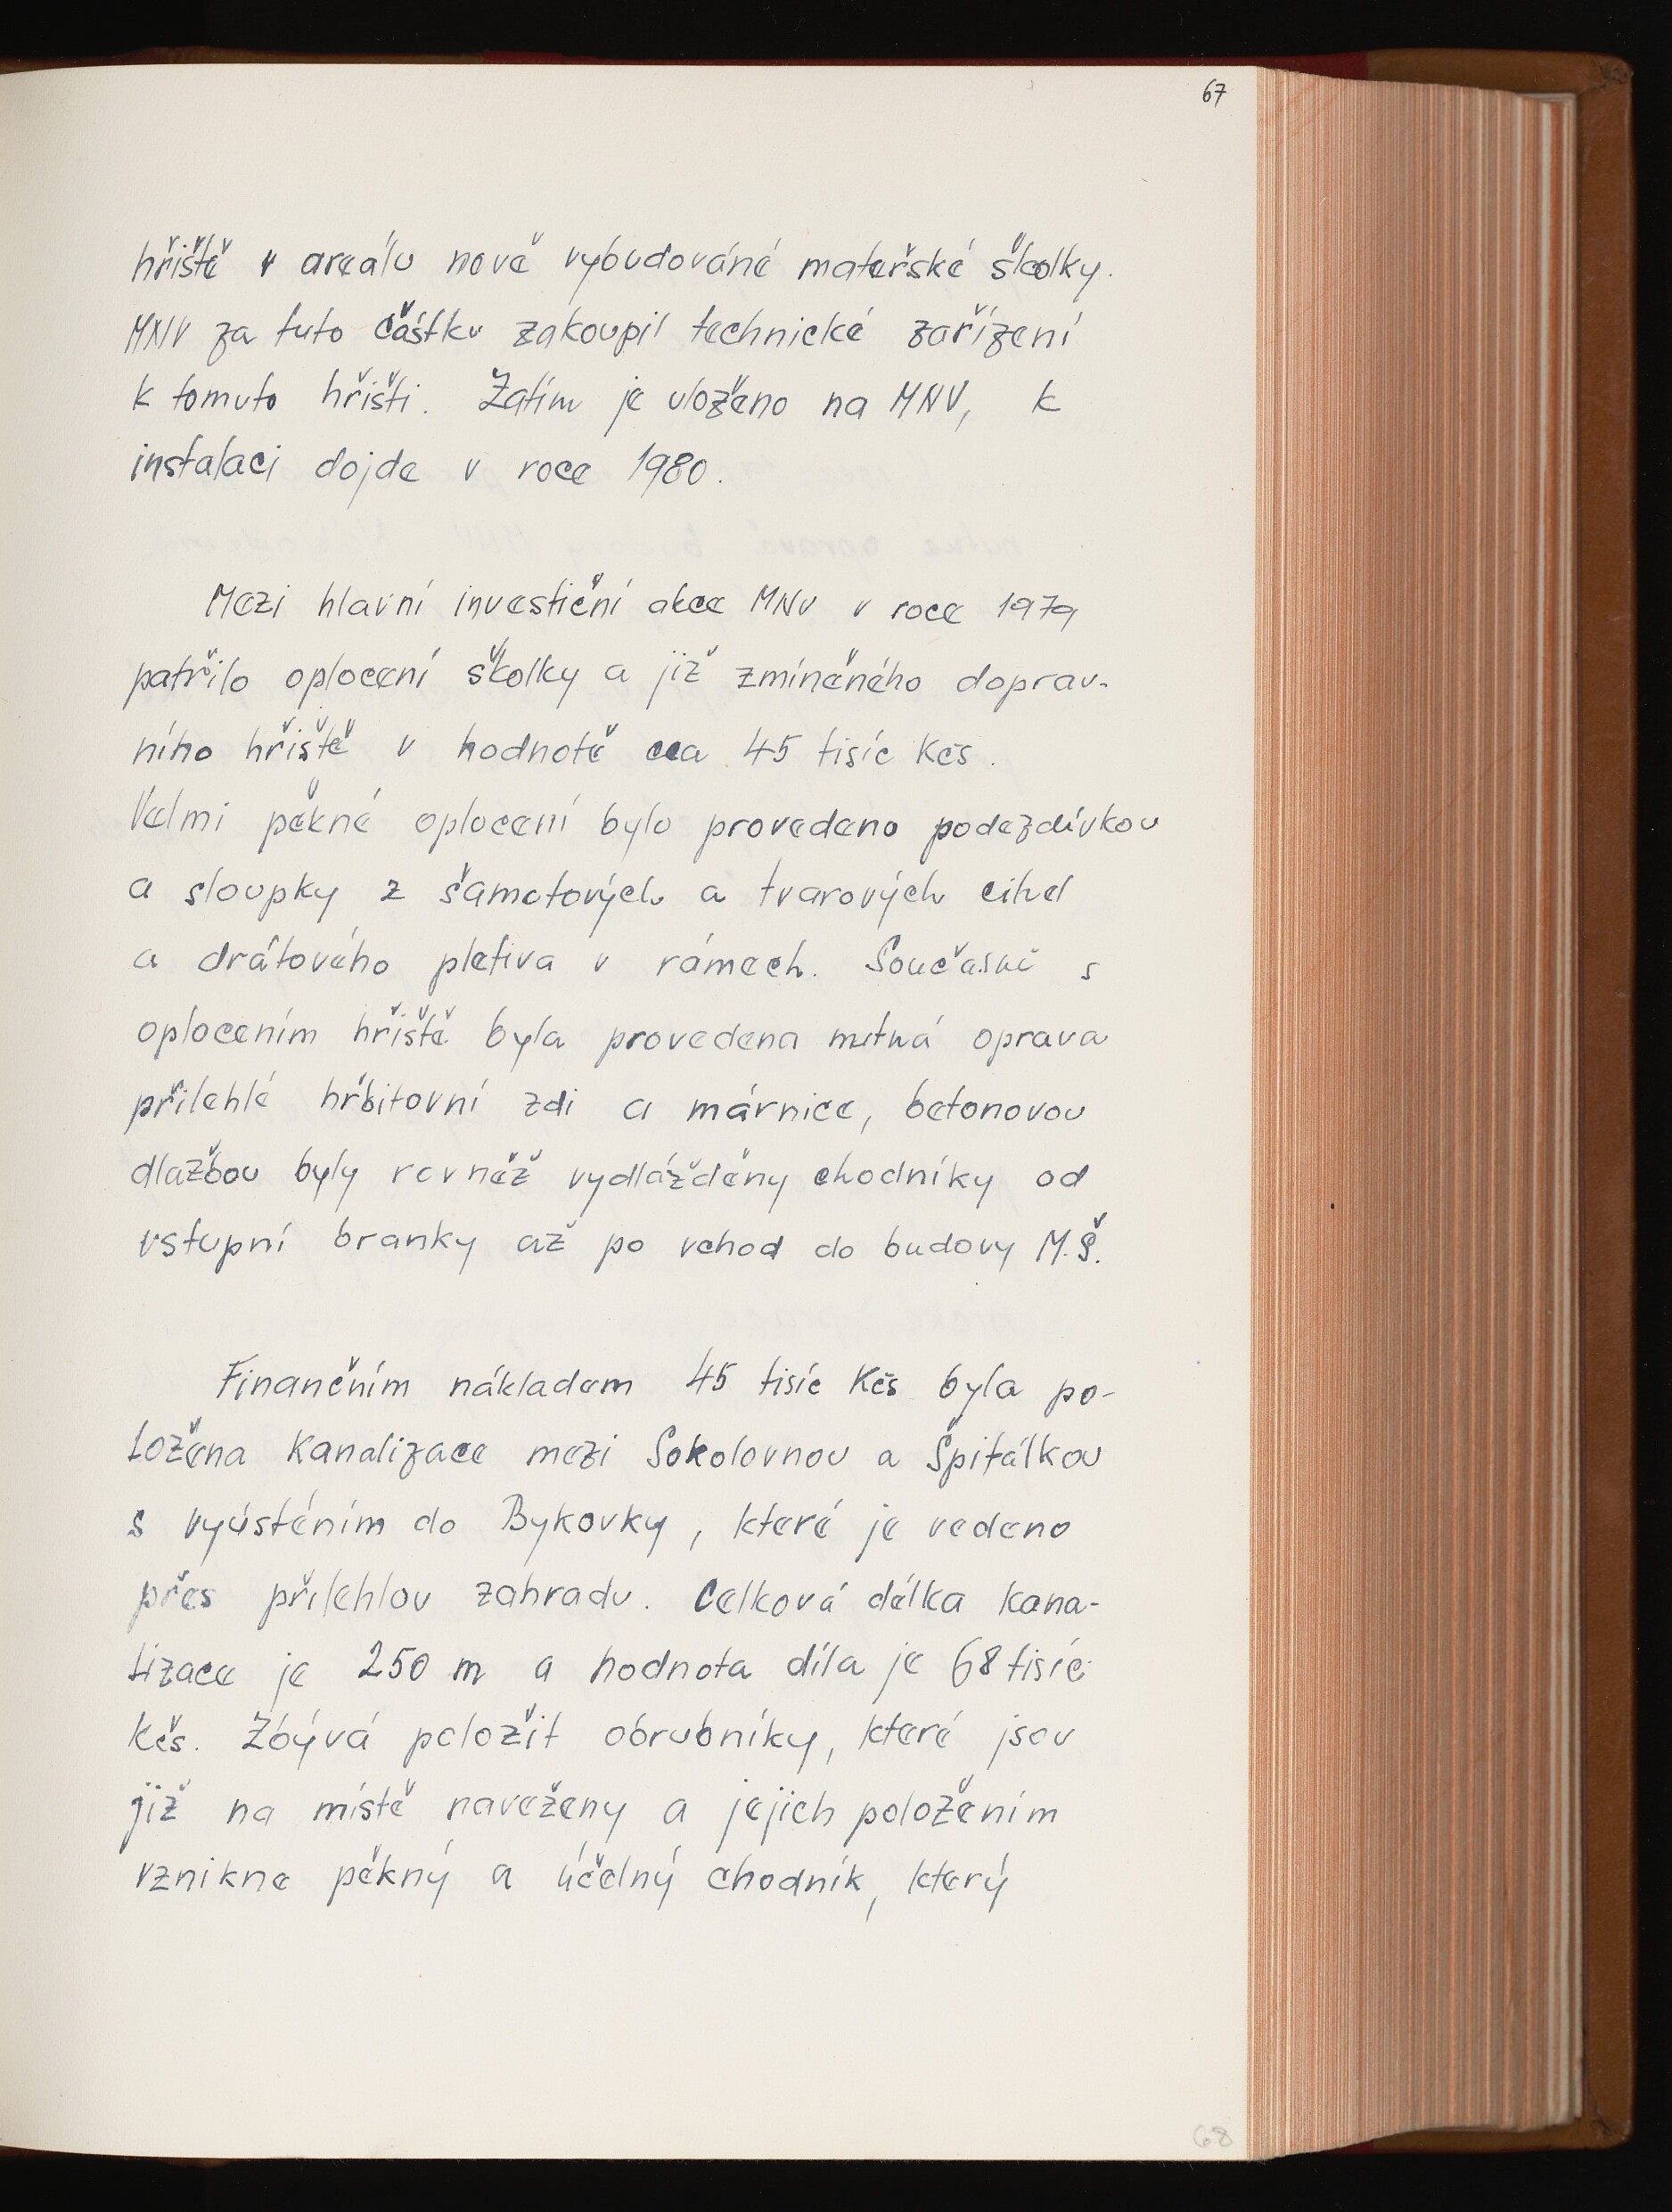 67
hřiště v areálu nově vybudováné mateřské školky.
MNV za tuto částku zakoupil technické zařízení
k tomuto hřišti. Zatím je uloženo na MNV, k
instalaci dojde v roce 1980.
Mezi hlavní investiční akce MNV v roce 1979
patřilo oplocení školky a již zmíněného doprav-
ního hřiště v hodnotě cca 45 tisíc Kčs.
Velmi pěkné oplocení bylo provedeno podezdívkou
a sloupky z šamotových a tvarových cihel
a drátového pletiva v rámech. Současně s
oplocením hřiště byla provedena nutná oprava
přilehlé hřbitovní zdi a márnice, betonovou
dlažbou byly rovněž vydlážděny chodníky od
vstupní branky až po vchod do budovy M.Š.
Finančním nákladem 45 tisíc Kčs byla po-
ložena kanalizace mezi Sokolovnou a Špitálkou
s vyústěním do Bykovky, které je vedeno
přes přilehlou zahradu. Celková délka kana-
lizace je 250 m a hodnota díla je 68 tisíc
Kčs. Zbývá položit obrubníky, které jsou
již na místě naveženy a jejich položením
vznikne pěkný a účelný chodník, který
68